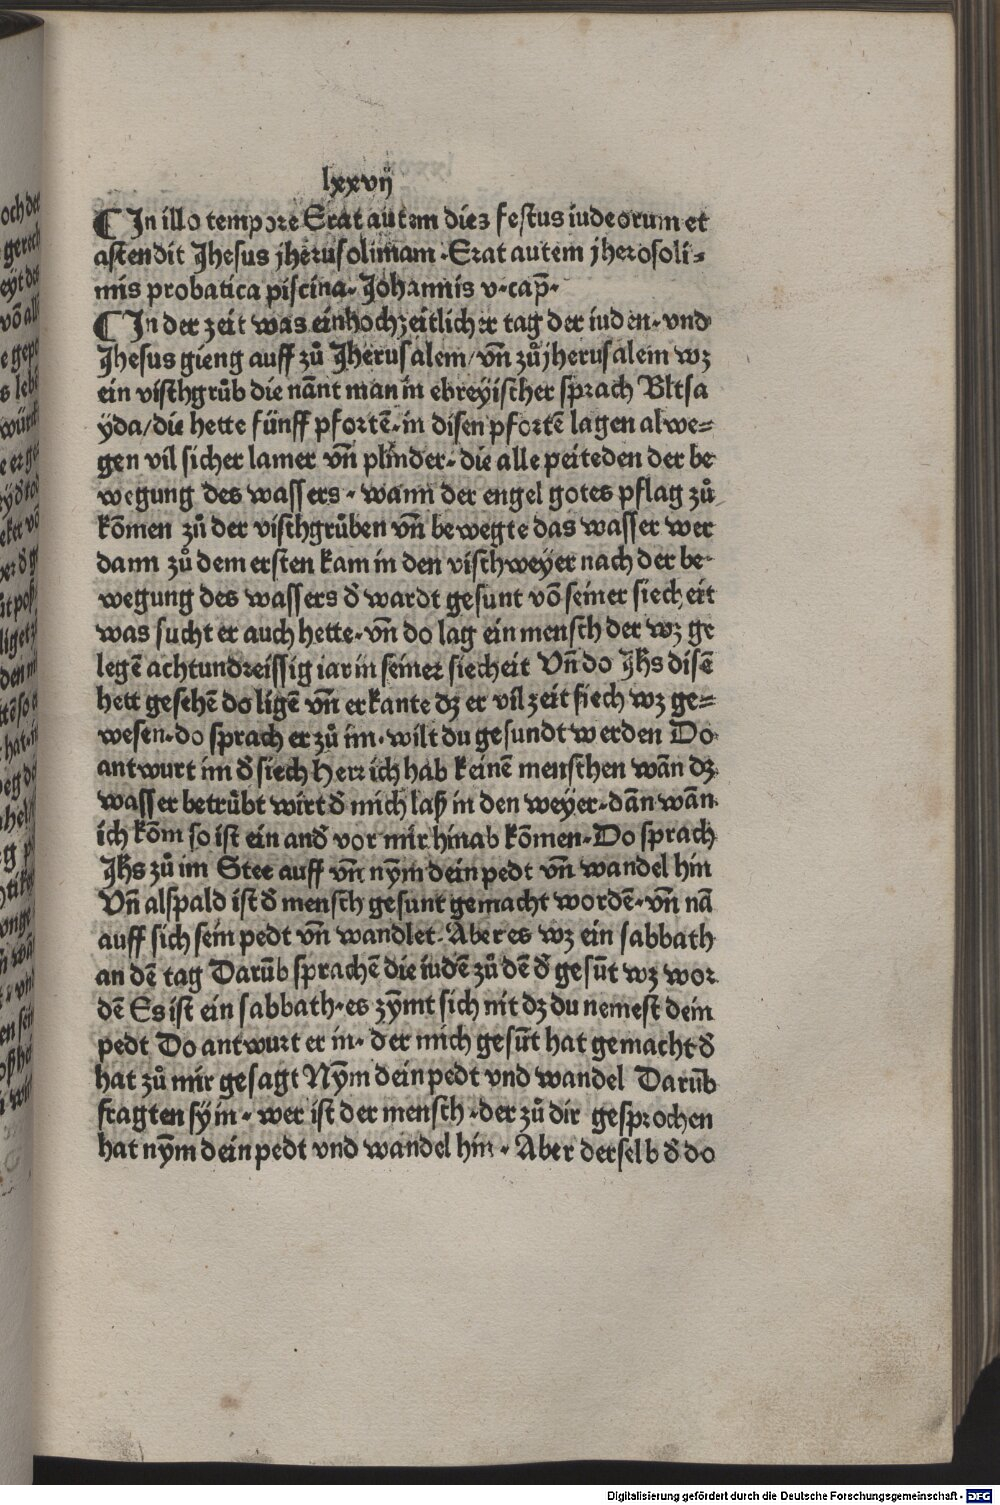 lxxvij
¶ In illo tempore Erat autem dies festus iudeorum et
astendit Jhesus jherusolimam · Erat autem jherosoli⸗
mis probatica piscina· Johannis v·cap̄·
¶ In der zeit was ein hochzeitlicher tag der iuden· vnd
Jhesus gieng auff zů Jherusalem/ vn̄ zů jherusalem wz
ein visthgrůb die nānt man in ebreyischer sprach Bltsa
yda/ die hette fünff pfortē· in disen pfortē lagen alwe⸗
gen vil sicher lamer vn̄ plinder· die alle peiteden der be
wegung des wassers · wann der engel gotes pflag zů
kōmen zů der visthgrůben vn̄ bewegte das wasser wer
dann zů dem ersten kam in den visthweyer nach der be⸗
wegung des wassers d̄ wardt gesunt vō seiner siecheit
was sucht er auch hette· vn̄ do lag ein mensch der wz ge
legē achtundreissig iar in seiner siecheit Vn̄ do Jh̄s disē
hett gesehē do ligē vn̄ erkante dz er vil zeit siech wz ge⸗
wesen· do sprach er zů im· wilt du gesundt werden Do
antwurt im d̄ siech Herr ich hab keinē menschen wān dz
wasser betrůbt wirt d̄ mich laß in den weyer· dān wān
ich kōm so ist ein and̄ vor mir hinab kōmen· Do sprach
Jh̄s zů im Stee auff vn̄ nȳm dein pedt vn̄ wandel hin
Vn̄ alspald ist d̄ mensch gesunt gemacht wordē· vn̄ nā
auff sich sein pedt vn̄ wandlet· Aber es wz ein sabbath
an dē tag Darūb sprachē die iudē zů dē d̄ gesūt wz wor
dē Es ist ein sabbath· es zȳmt sich nit dz du nemest dein
pedt Do antwurt er in· der mich gesūt hat gemacht d̄
hat zů mir gesagt Nȳm dein pedt vnd wandel Darūb
fragten sy in · wer ist der mensch · der zů dir gesprochen
hat nȳm dein pedt vnd wandel hin · Aber derselb d̄ do
Digitalisierung gefördert durch die Deutsche Forschungsgemeinschaft - DFG